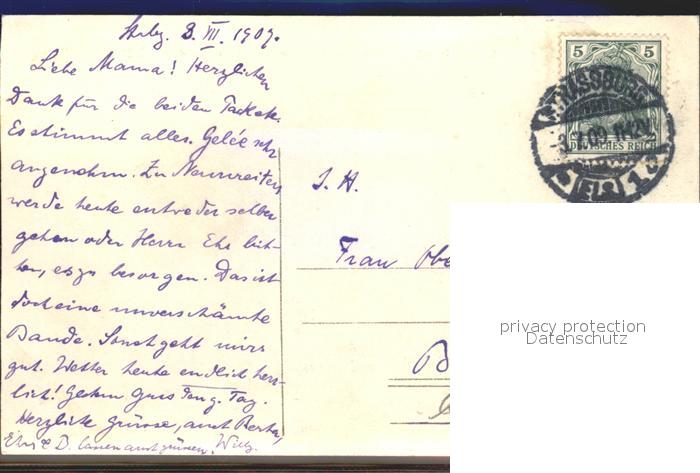 Strbg. 3. III. 1909.
Liebe Mama! Herzlichen
Dank für die beiden Packete.
Es stimmt alles. Gelée sehr
angenehm. Zu Neunreiter
werde heute entweder selber
gehen oder Herrn Ehr bit-
ten, es zu besorgen. Das ist
doch eine unverschämte
Bande. Sonst geht mirs
gut. Wetter heute endlich herr-
lich! Gestern Tag.
Herzliche Grüsse, auch Berta,
Ehr & D. lassen auch grüssen. Willy.
J. H.
Frau Obe
B
5 5
DEUTSCHES REICH
STRASSBURG
(ELS)
privacy protection
Datenschutz